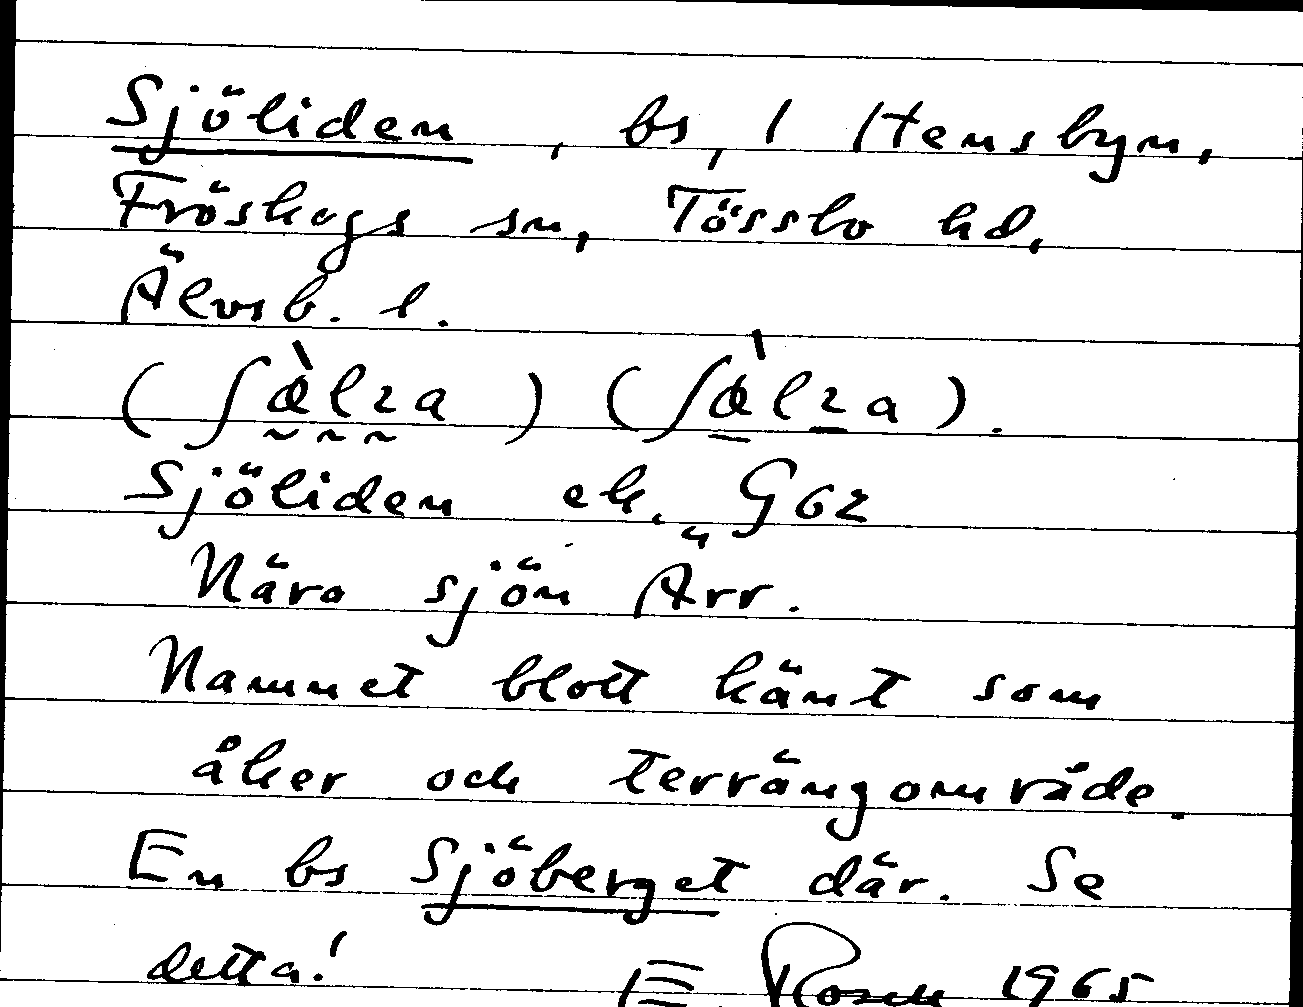 Sjöliden, bs, 1 Hensbyn,
Fröskogs sn, Tössbo hd,
Älvsb. l.
Sjöliden ek. G62
Nära sjön Ärr.
Namnet blott känt som
åker och terrängområde.
En bs Sjöberget där. Se
detta! E 1965